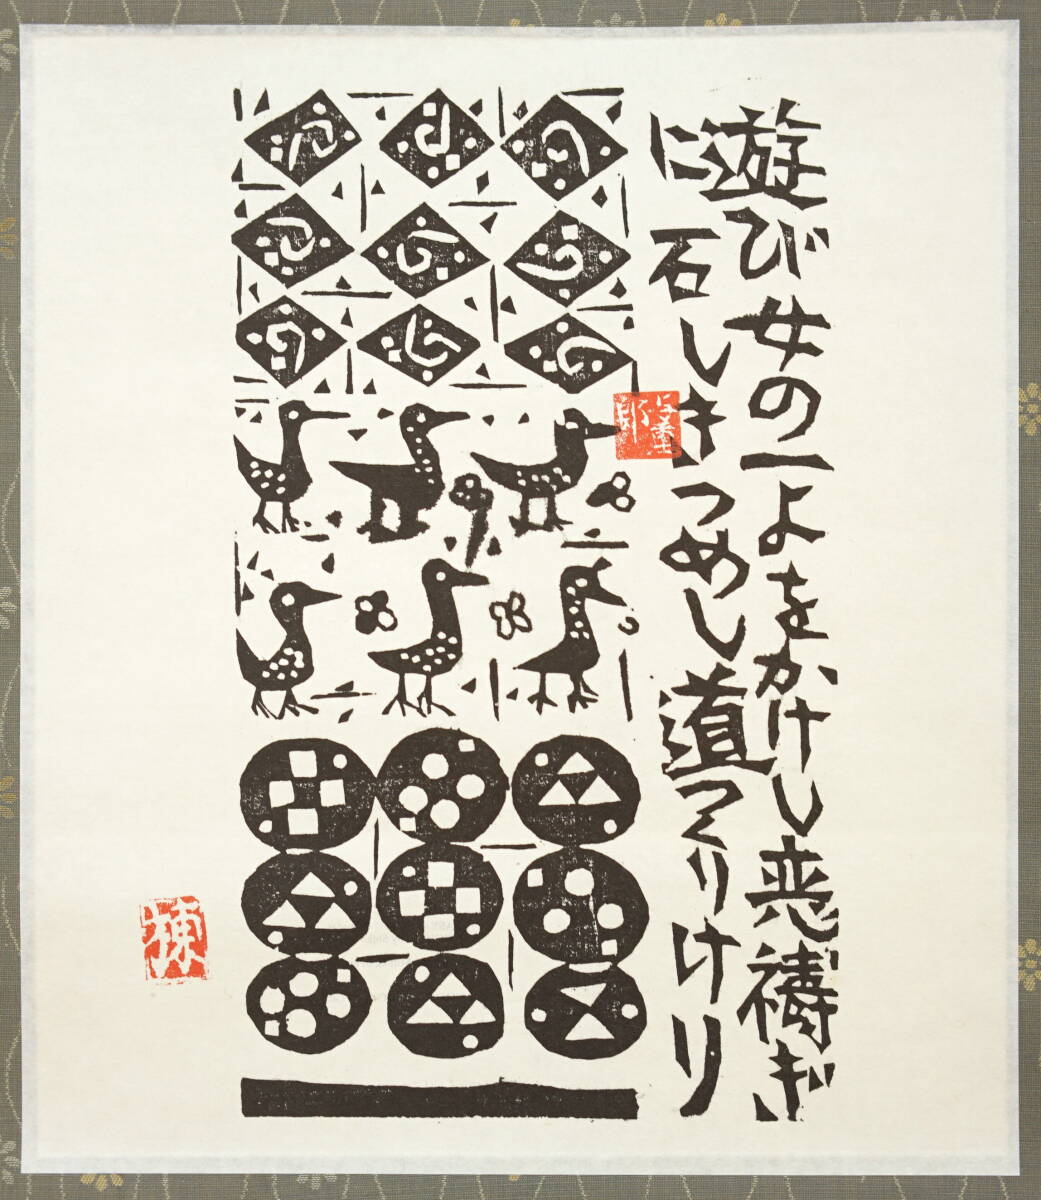 遊び女の一よをかけし恋禱ぎ
に石しきつめし道つくりけり
棟